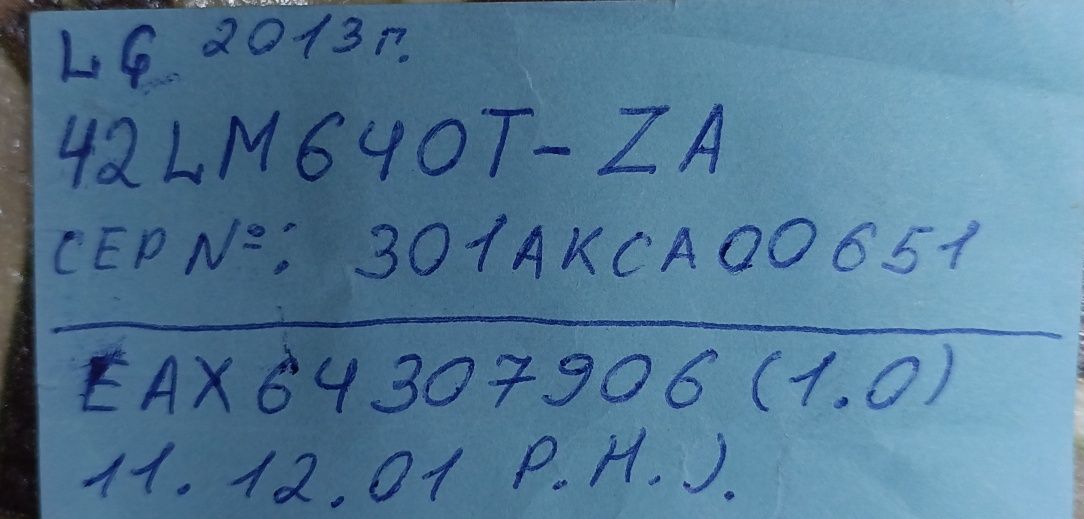 LG 2013г.
42LM640T-ZA
СЕР №: 301AKCA00651
EAX64307906 (1.0)
11.12.01 P.H.J.